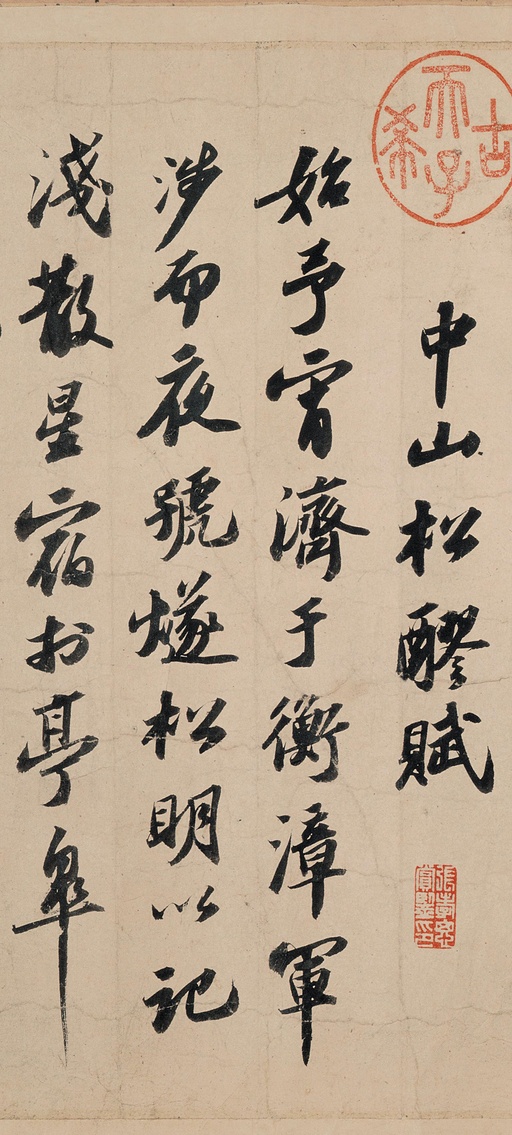 中山松醪賦
始予宵濟于衡漳軍
涉而夜號燧松明以記
淺散星宿於亭皋
古希天子